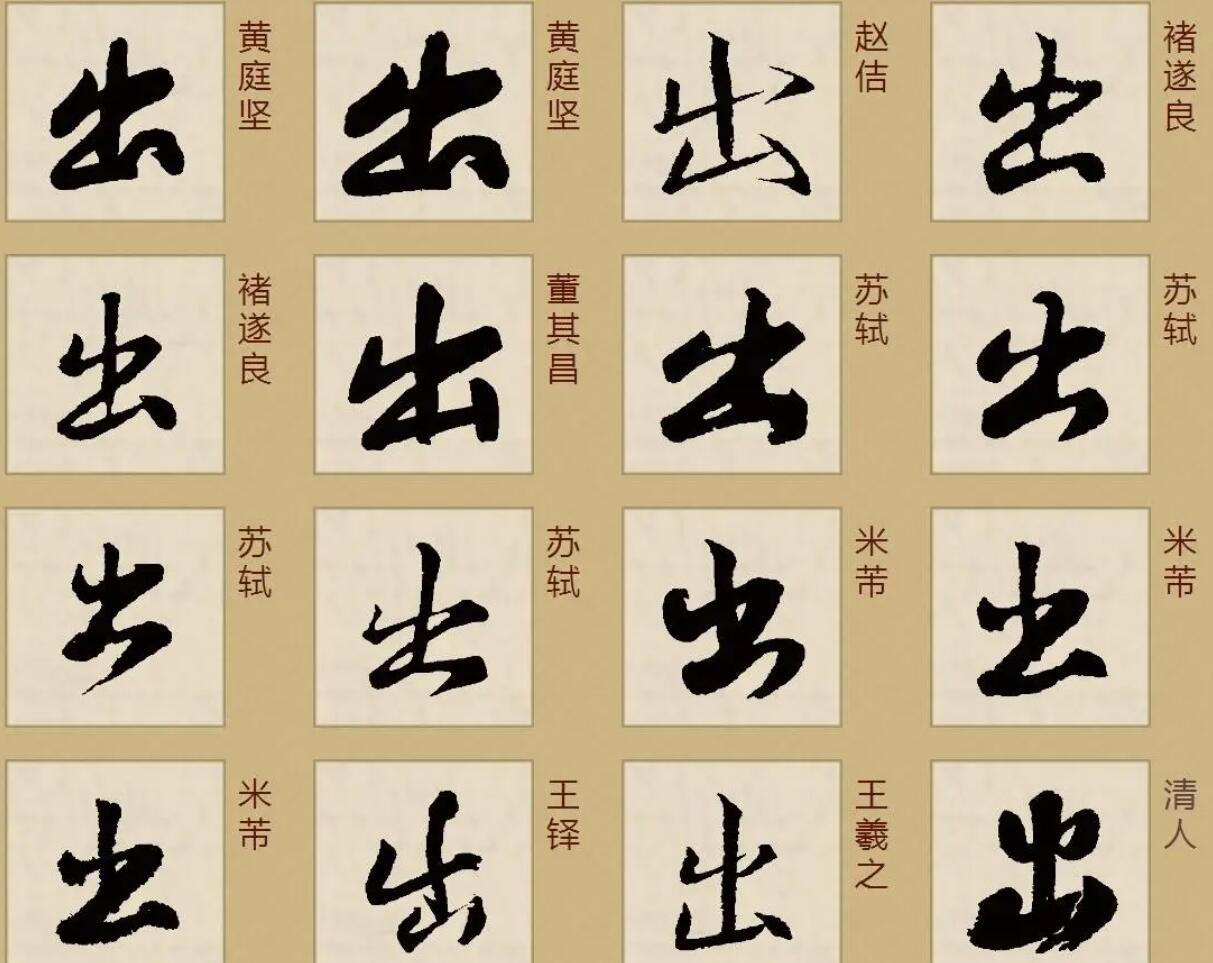 出 黄庭坚 出 黄庭坚 出 赵佶 出 褚遂良
出 褚遂良 出 董其昌 出 苏轼 出 苏轼
出 苏轼 出 苏轼 出 米芾 出 米芾
出 米芾 出 王铎 出 王羲之 出 清人